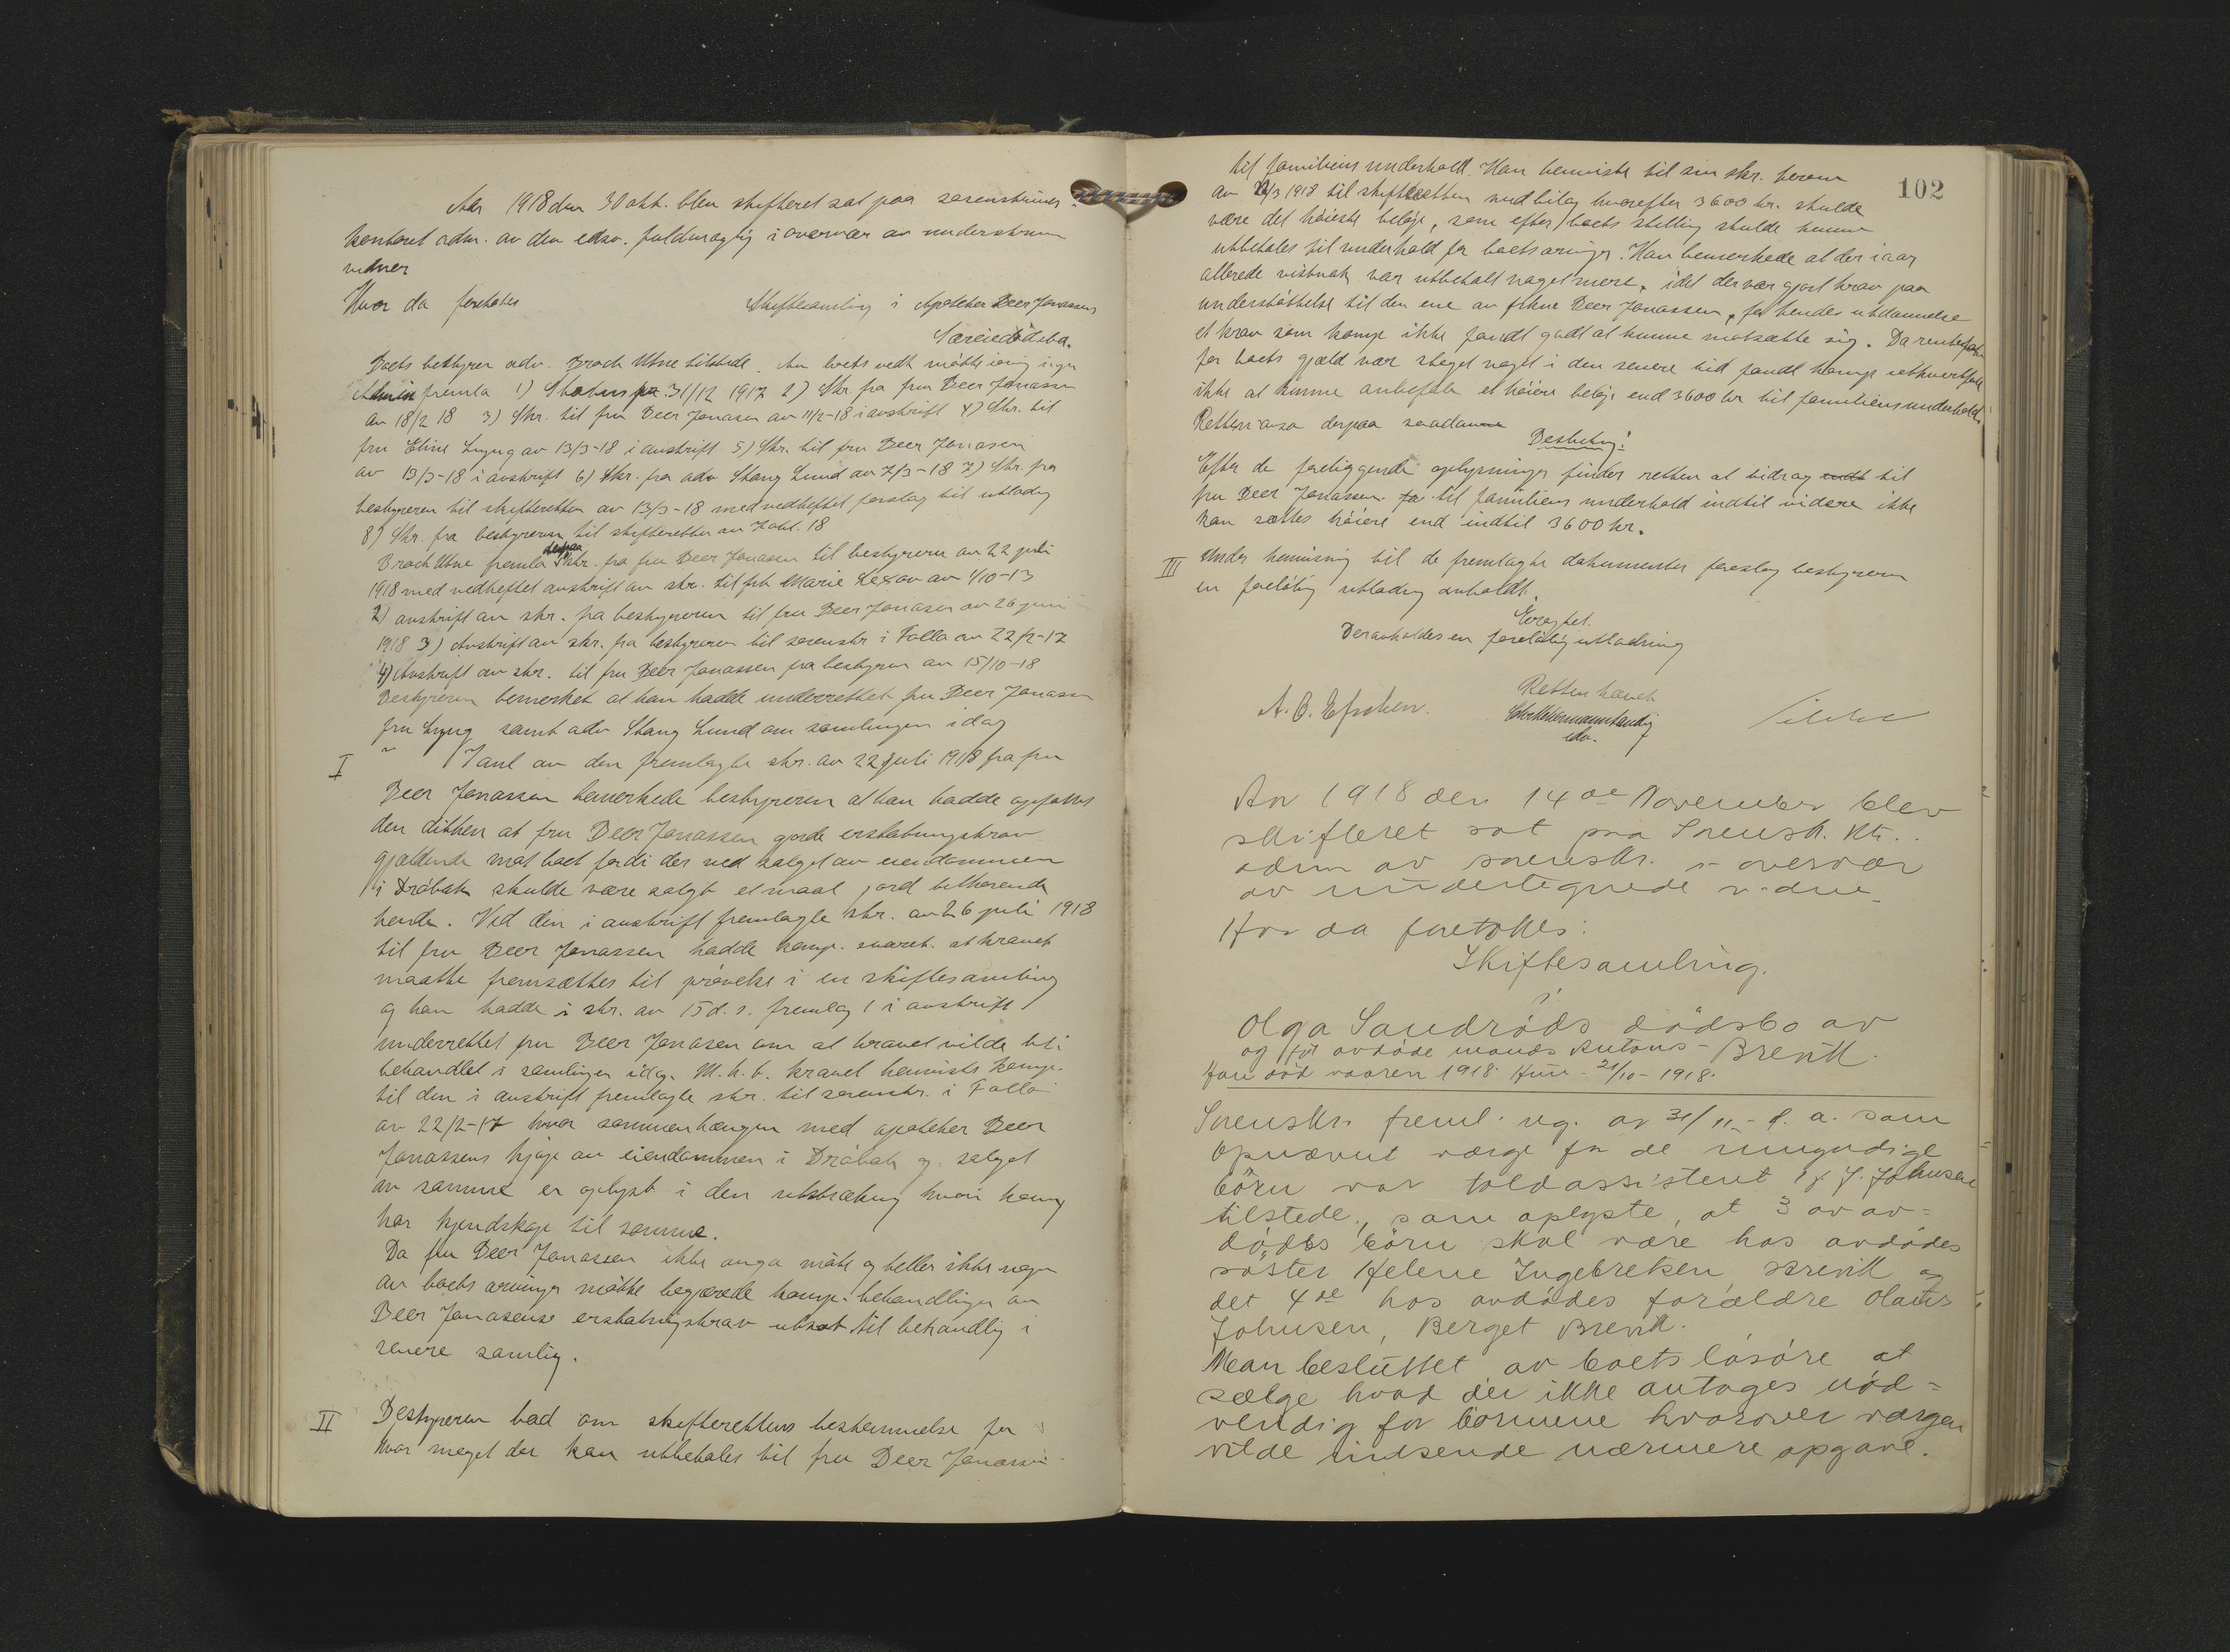 Aar 1918 den 30 okt. blev skifteret sat paa sorenskriver-
kontoret adm. av den edsv. fuldmægtig i overvær av underskrevne
vidner
Hvor da foretokes Skiftesamling i Apoteker Deer Jonassens
Særeiedödsbo.
Boets bestyrer adv. Broch Utne tilstede. Av boets vedk. møtte iøvrig ingen
Admin fremla 1) Status pr. 31/12 1917 2) Skr. fra fru Deer Jonassen
av 18/2 18 3) Skr. til fru Deer Jonasen av 11/2-18 i avskrift 4) Skr. til
fru Eline Lyng av 13/3-18 i avskrift 5) Skr. til fru Deer Jonasen
av 13/3-18 i avskrift 6) Skr. fra adv Stang Lund av 7/3-18 7) Skr. fra
bestyreren til skifteretten av 13/3-18 med vedheftet forslag til utlodng
8) Skr. fra bestyreren til skifteretten av 7 okt. 18
Broch Utne fremla derpaa Skr. fra fru Deer Jonassen til bestyreren av 22 juli
1918 med vedheftet avskrift av skr. til frk Marie Lexow av 1/10-13
2) avskrift av skr. fra bestyreren til fru Deer Jonasen av 26 juni
1918 3) Avskrift av skr. fra bestyreren til sorenskr i Follo av 22/2-17
4) Avskrift av skr. til fru Deer Jonassen fra bestyreren av 15/10-18
Bestyreren bemerket at han hadde underrettet fru Deer Jonassen
fru Lyng samt adv Stang Lund om samlingen idag
I I anl av den fremlagte skr. av 22 juli 1918 fra fru
Deer Jonassen bemerkede bestyreren at han hadde opfattet
den ditthen at fru Deer Jonassen gjorde erstatningskrav
gjældende mot boet fordi der ved salget av eiendommen
i Dröbak skulde være solgt et maal jord tilhørende
hende. Ved den i avskrift fremlagte skr. av 26 juli 1918
til fru Deer Jonassen hadde komp. svaret at kravet
maatte fremsættes til prøvelse i en skiftesamling
og han hadde i skr. av 15 d.s. fremlagt i avskrift
underrettet fru Deer Jonasen om at kravet vilde bli
behandlet i samlingen idag. M.h.t. kravet henviste komp.
til den i avskrift fremlagte skr. til sorenskr. i Follo
av 22/2-17 hvor sammenhængen med apoteker Deer
Jonassens kjøp av eiendommen i Dröbak og salget
av samme er oplyst i den utstrækning hvori komp
har kjendskap til samme.
Da fru Deer Jonassen ikke møtte og heller ikke nogen
av boets arvinger møtte begjærede komp. behandlingen av
Deer Jonasens erstatningskrav utsat til behandlig i
senere samlig.
II Bestyreren bad om skifterettens bestemmelse for
hvor meget der kan utbetales til fru Deer Jonassen
102
til familiens underhold. Han henviste til sin skr. herom
av 13/3 1918 til skifteretten med bilag hvorefter 3600 kr. skulde
være det höieste beløp, som efter boets stilling skulde kunne
utbetales til underhold for boets arvinger. Han bemerkede at der iaar
allerede vistnok var utbetalt noget mere, idet der var gjort krav paa
understöttelse til den ene av frkne Deer Jonassen, for hendes utdannelse
et krav som komp ikke fandt godt at kunne motsætte sig. Da rentefoten
for boets gjæld var steget noget i den senere tid fandt komp ethvertfald
ikke at kunne anbefale et höiere beløp end 3600 kr til familiens underhold.
Retten avsa derpaa saadan
Beslutng:
Efter de foreliggende oplysninger finder retten at bidrag til
fru Deer Jonassen til familiens underhold indtil videre ikke
kan sættes höiere end indtil 3600 kr.
III Under henvisning til de fremlagte dokumenter foreslog bestyreren
en foreløbig utlodng avholdt.
Eragtet.
Der avholdes en foreløbig utlodning
Retten hævet
A. O. Efschen.
edsv.
Aar 1918 den 14de November blev
skifteret sat paa Sorensk. Ktr.
adm av sorenskr. i overvær
av undertegnede vidne
Hvor da foretokes:
Skiftesamling.
i
Olga Sandröds dödsbo av
og før avdøde mands Antons - Brevik.
Han död vaaren 1918 Hun - 21/10-1918.
Sorenskr. freml. reg. av 31/11 d. a. som
opnævnt værge for de umyndige
børn var toldassistent J. Johnsen
tilstede, som oplyste, at 3 av av-
dødes börn skal være hos avdødes
söster Helene Ingebretsen, Brevik og
det 4de hos avdödes forældre Olaus
Johnsen, Berget Brevik.
Man besluttet av boets lösöre at
sælge hvad der ikke antages nöd-
vendig for børnene hvorover værgen
vilde indsende nærmere opgave.